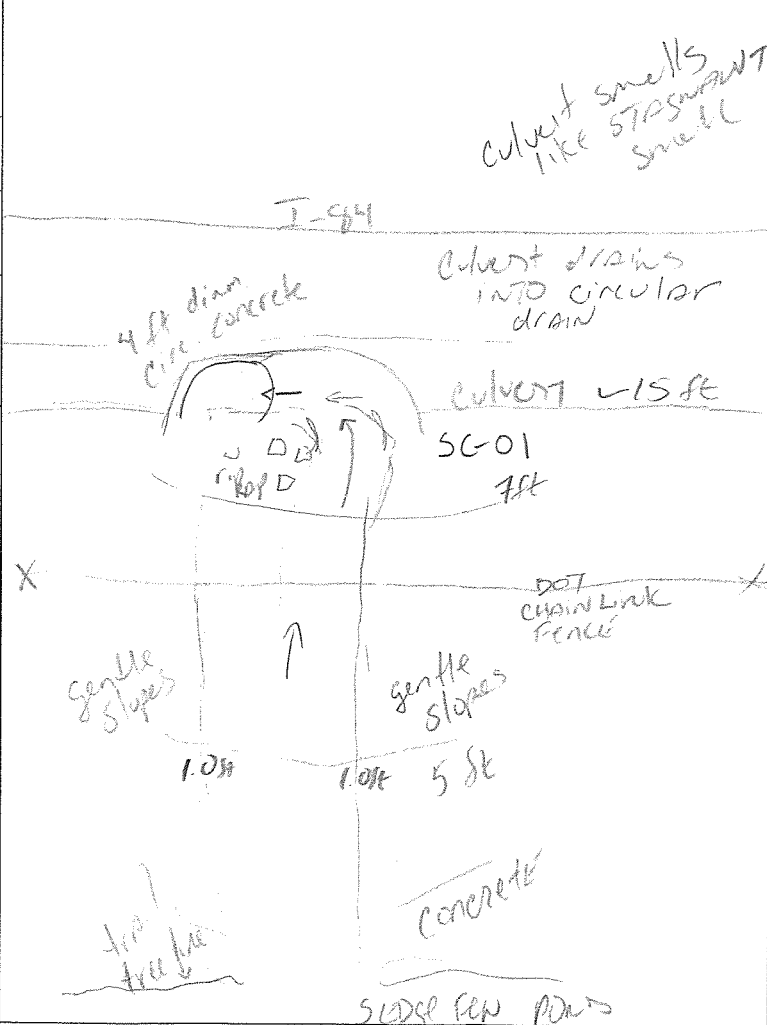 culvert smells
like STAGNANT
smell
I-984
Culvert drains
INTO circular
drAIN
4 ft diam
circ. concrete
Culvert ~15 ft
SG-01
riprap
7ft
X
DOT
CHAIN LINK
FENCE
gentle
slopes
gentle
slopes
1.0ft
1.0ft
5 ft
concrete
tree line
SEDGE FEN POND